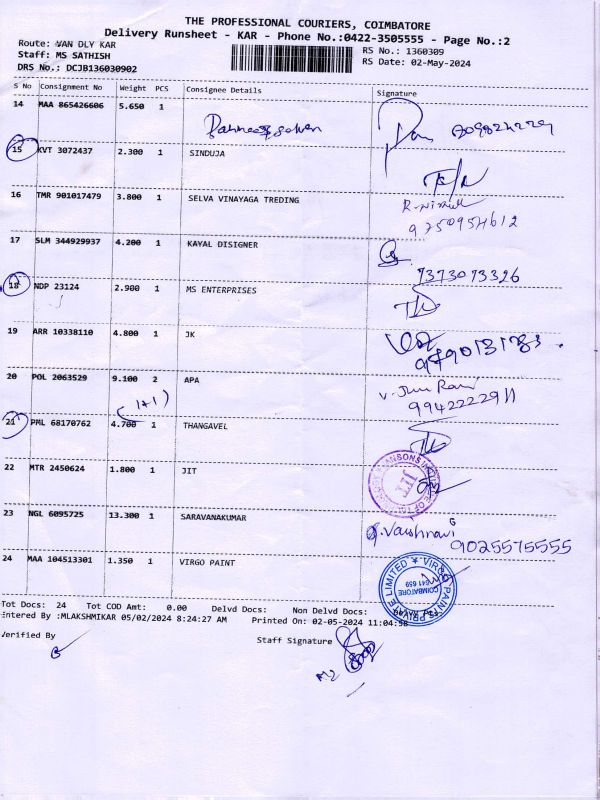 THE PROFESSIONAL COURIERS, COIMBATORE
Delivery Runsheet - KAR - Phone No.:0422-3505555 - Page No.:2
Route: VAN DLY KAR
Staff: MS SATHISH
DRS No.: DCJB136030902
RS No.: 1360309
RS Date: 02-May-2024
S No Consignment No Weight PCS Consignee Details Signature
14 MAA 865426606 5.650 1
15 KVT 3072437 2.300 1 SINDUJA
16 TMR 901017479 3.800 1 SELVA VINAYAGA TREDING
9750954612
17 SLM 344929937 4.200 1 KAYAL DISIGNER
7373073326
18 NDP 23124 2.900 1 MS ENTERPRISES
19 ARR 10338110 4.800 1 JK
20 POL 2063529 9.100 2 APA
(1+1)
9942222911
21 PML 68170762 4.700 1 THANGAVEL
22 MTR 2450624 1.800 1 JIT
JIT
23 NGL 6095725 13.300 1 SARAVANAKUMAR
9025575555
24 MAA 104513301 1.350 1 VIRGO PAINT
VIRGO PAINTS PRIVATE LIMITED
COIMBATORE
641 659
Tot Docs: 24 Tot COD Amt: 0.00 Delvd Docs: Non Delvd Docs:
Entered By :MLAKSHMIKAR 05/02/2024 8:24:27 AM Printed On: 02-05-2024 11:04:58
Verified By
Staff Signature